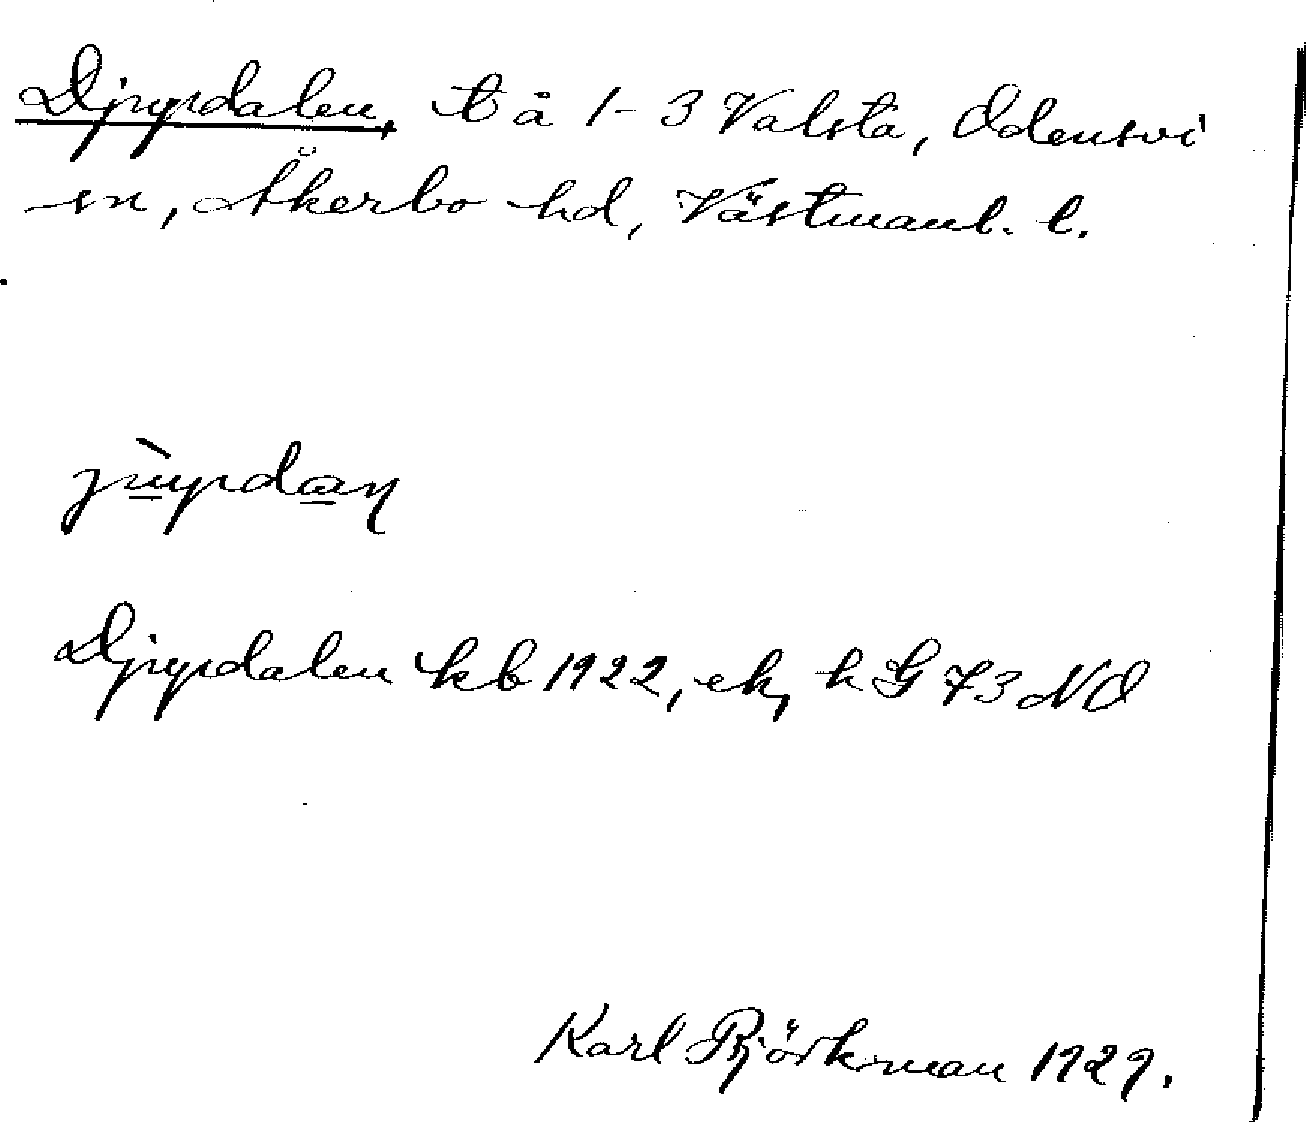 Djupdalen, t å 1-3 Valsta, Odensvi
sn, Åkerbo hd, Västmanl. l.
Djupdalen kb 1922, ek, h G 73 NO
Karl Björkman 1929.